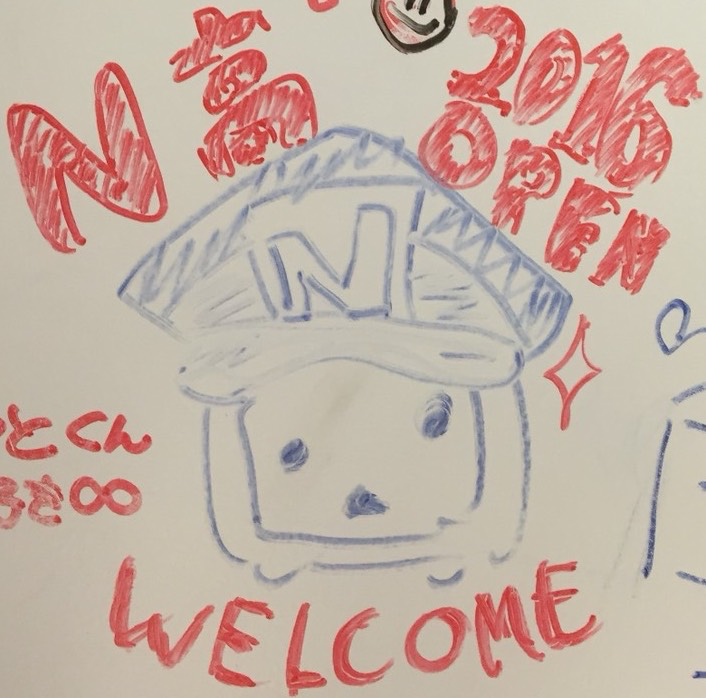 N高 2016
OPEN
N
とくん
∞
WELCOME